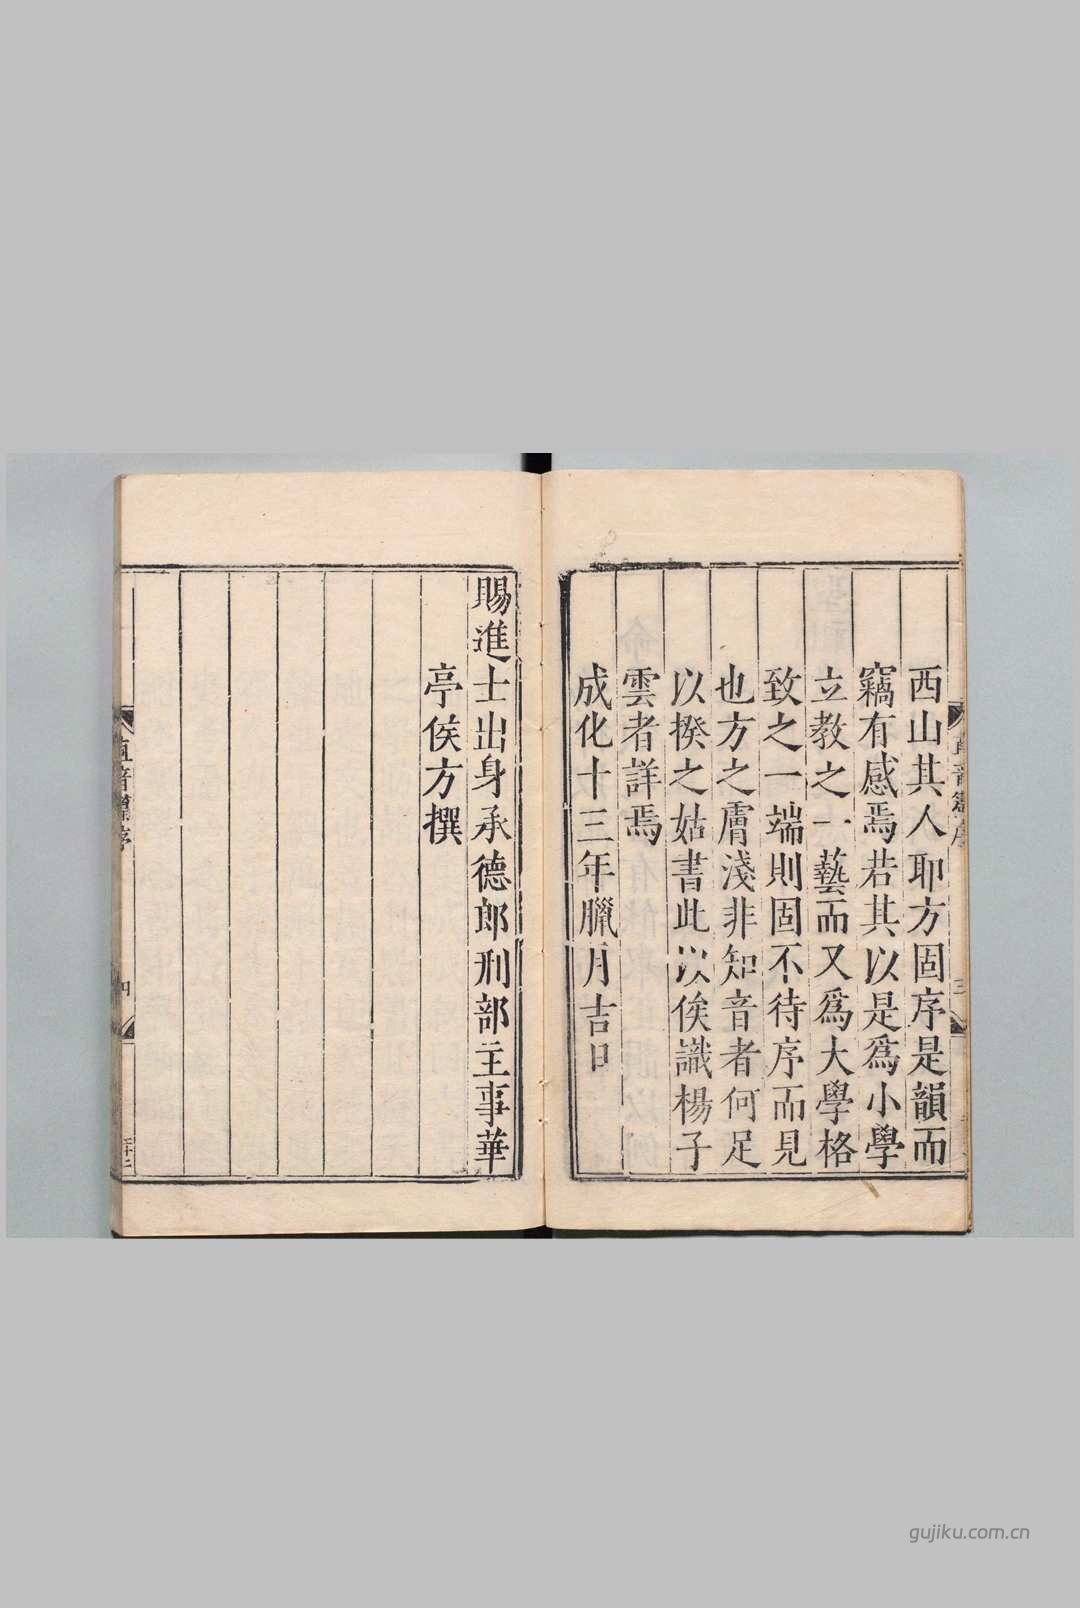 西山其人耶方固序是韻而
竊有感焉若其以是爲小學
立教之一藝而又爲大學格
致之一端則固不待序而見
也方之膚淺非知音者何足
以揆之姑書此以俟識楊子
雲者詳焉
成化十三年臘月吉日
三
賜進士出身承德郎刑部主事華
亭侯方撰
直音篇序
四
gujiku.com.cn